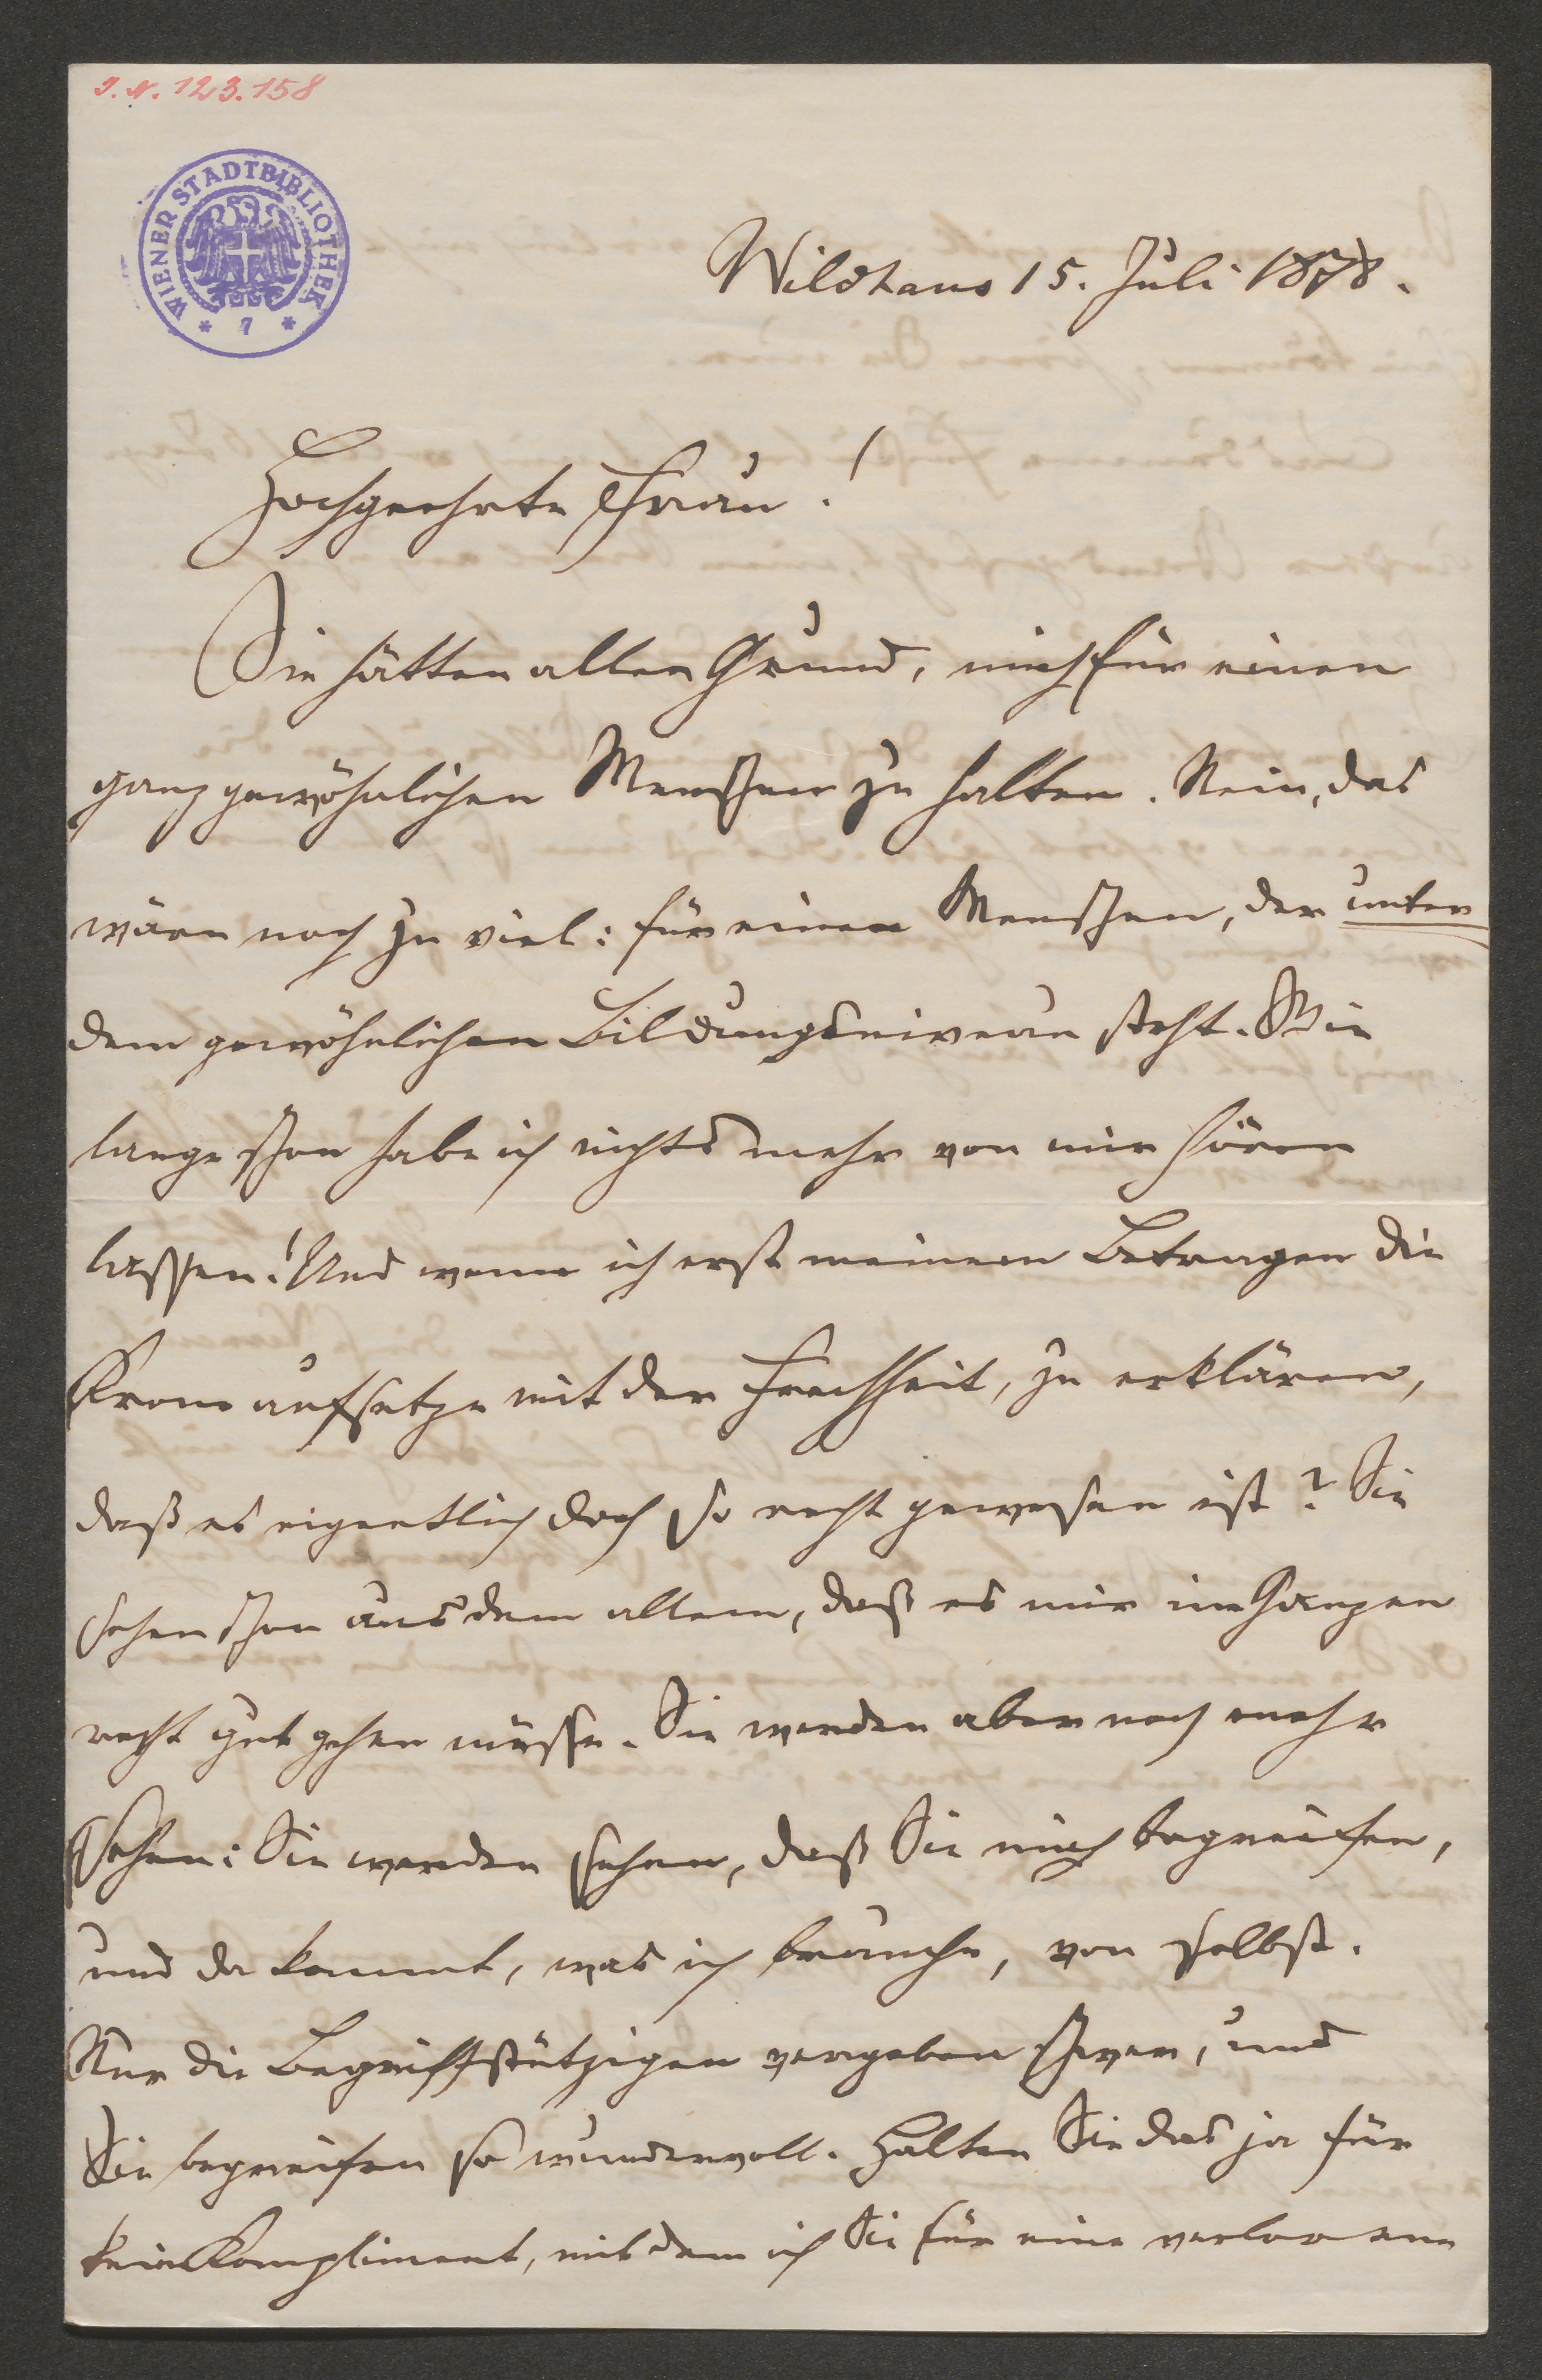 J. N. 123.158
WIENER STADTBIBLIOTHEK
* 7 *
Wildhaus 15. Juli 1878.
Hochgeehrte Frau!
Sie hätten allen Grund, mich für einen
ganz gewöhnlichen Menschen zu halten. Nein, das
wäre noch zu viel: für einen Menschen, der unter
dem gewöhnlichen Bildungsniveau steht. Wie
lange schon habe ich nichts mehr von mir hören
lassen! Und wenn ich erst meinem Betragen die
Krone aufsetze mit der Frechheit, zu erklären,
daß es eigentlich doch so recht gewesen ist? Sie
sehen schon aus dem allem, daß es mir im Ganzen
recht gut gehen müsse. Sie werden aber noch mehr
sehen: Sie werden sehen, daß Sie mich begreifen,
und da kommt, was ich brauche, von selbst.
Nur die Begriffstützigen vergeben schwer, und
Sie begreifen so wundervoll. Halten Sie das ja für
kein Kompliment, mit dem ich Sie für eine verlorene